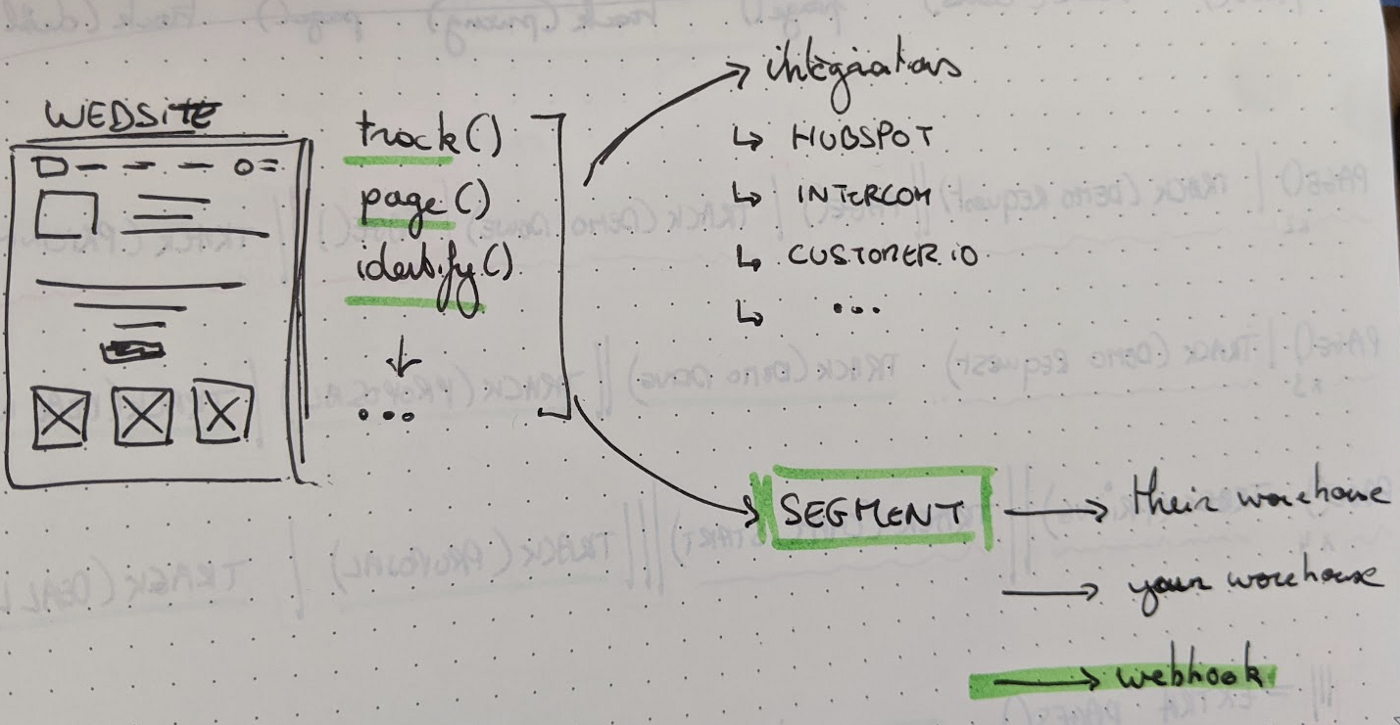 WEDSITE
track()
page()
identify()
...
integrations
HUBSPOT
INTERCOM
CUSTOMER.IO
...
SEGMENT
their warehouse
your warehouse
webhook